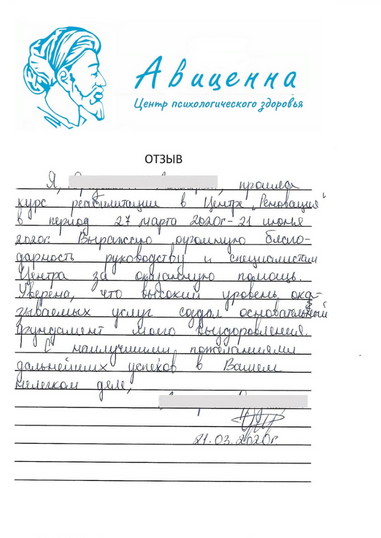 Авиценна
Центр психологического здоровья
ОТЗЫВ
Я, прошла
курс реабилитации в Центре „Реновация"
в период 27 марта 2020г-21 июня
2020г. Выражаю огромную благо-
дарность руководству и специалистам
Центра за оказанную помощь.
Уверена, что высокий уровень ока-
зываемых услуг создал основательный
фундамент моего выздоровления.
С наилучшими пожеланиями
дальнейших успехов в Вашем
нелегком деле,
21.03.2020г.